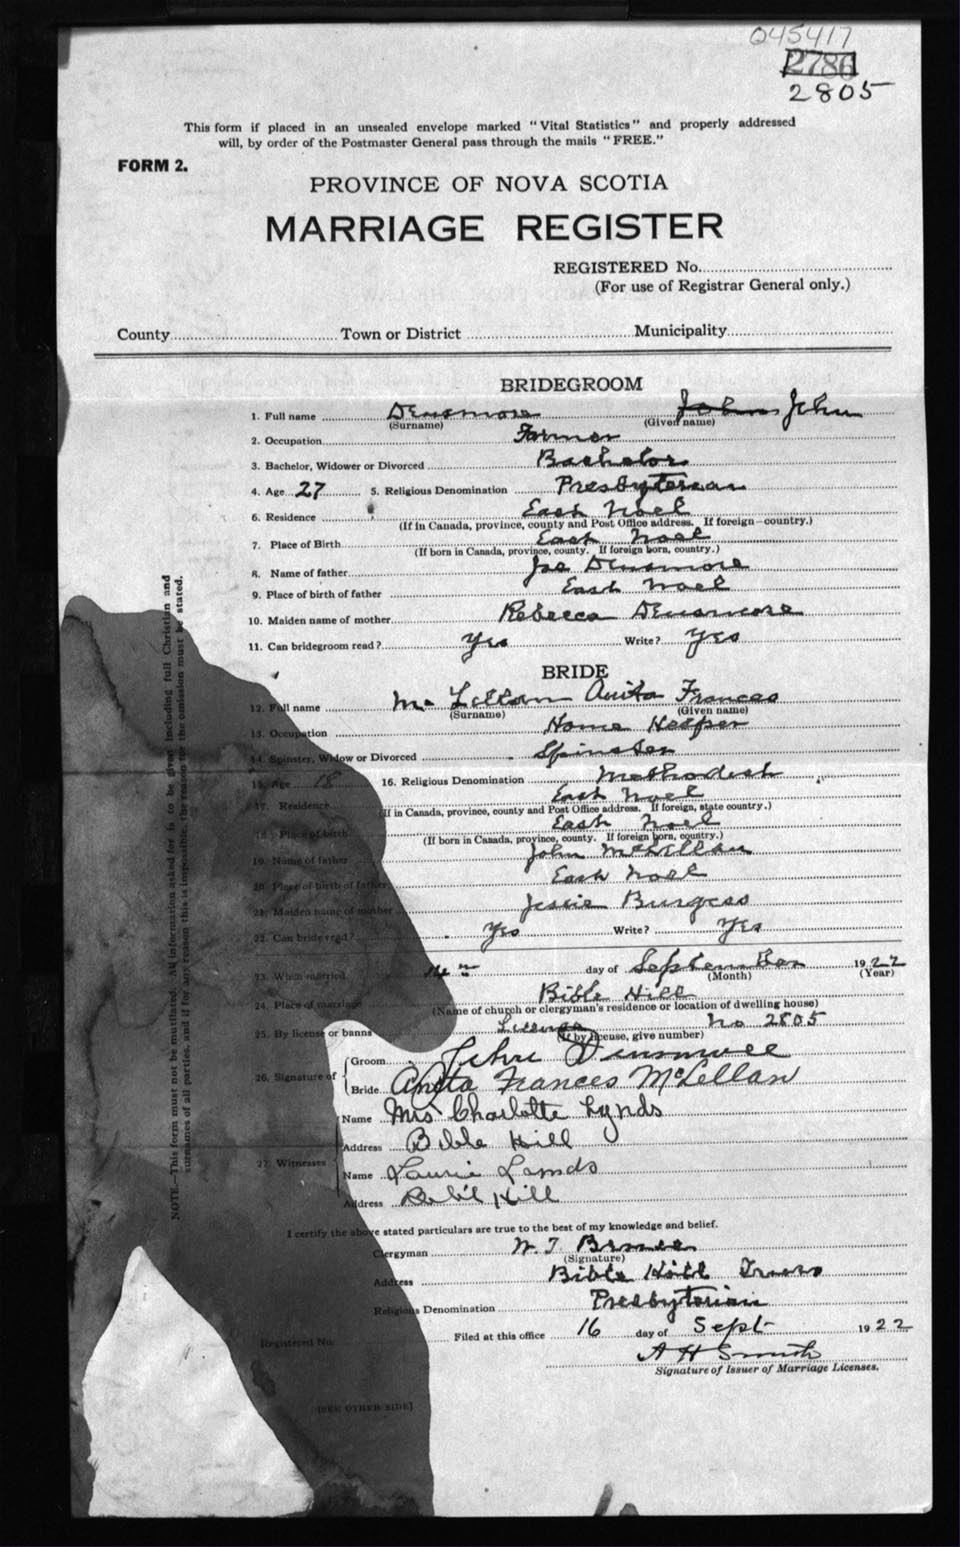 045417
2786
2805
This form if placed in an unsealed envelope marked "Vital Statistics" and properly addressed
will, by order of the Postmaster General pass through the mails "FREE."
FORM 2.
PROVINCE OF NOVA SCOTIA
MARRIAGE REGISTER
REGISTERED No.
(For use of Registrar General only.)
County Town or District Municipality
BRIDEGROOM
1. Full name Densmore John John
(Surname) (Given name)
2. Occupation Farmer
3. Bachelor, Widower or Divorced Bachelor
4. Age 27 5. Religious Denomination Presbyterian
6. Residence East Noel
(If in Canada, province, county and Post Office address. If foreign—country.)
7. Place of Birth East Noel
(If born in Canada, province, county. If foreign born, country.)
8. Name of father Joe Densmore
9. Place of birth of father East Noel
10. Maiden name of mother Rebecca Densmore
11. Can bridegroom read? Yes Write? Yes
BRIDE
12. Full name Mc Lellan Anita Frances
(Surname) (Given name)
13. Occupation Home Helper
14. Spinster, Widow or Divorced Spinster
15. Age 18 16. Religious Denomination Methodist
17. Residence East Noel
(If in Canada, province, county and Post Office address. If foreign, state country.)
18. Place of birth East Noel
(If born in Canada, province, county. If foreign born, country.)
19. Name of father John McLellan
20. Place of birth of father East Noel
21. Maiden name of mother Jessie Burgess
22. Can bride read? Yes Write? Yes
23. When married day of September 1922
(Month) (Year)
24. Place of marriage Bible Hill
(Name of church or clergyman's residence or location of dwelling house)
25. By license or banns License No 2805
(If by license, give number)
26. Signature of Groom John Densmore
Bride Anita Frances McLellan
27. Witnesses
Name Mrs Charlotte Lynds
Address Bible Hill
Name Laurie Lynds
Address Bible Hill
I certify the above stated particulars are true to the best of my knowledge and belief.
Clergyman W. T.
(Signature)
Address Bible Hill Truro
Religious Denomination Presbyterian
Registered No. Filed at this office 16 day of Sept 1922
A H Smith
Signature of Issuer of Marriage Licenses.
[SEE OTHER SIDE]
NOTE.—This form must not be mutilated. All information asked for is to be given including full Christian and
surnames of all parties, and if for any reason this is impossible, the reason for the omission must be stated.